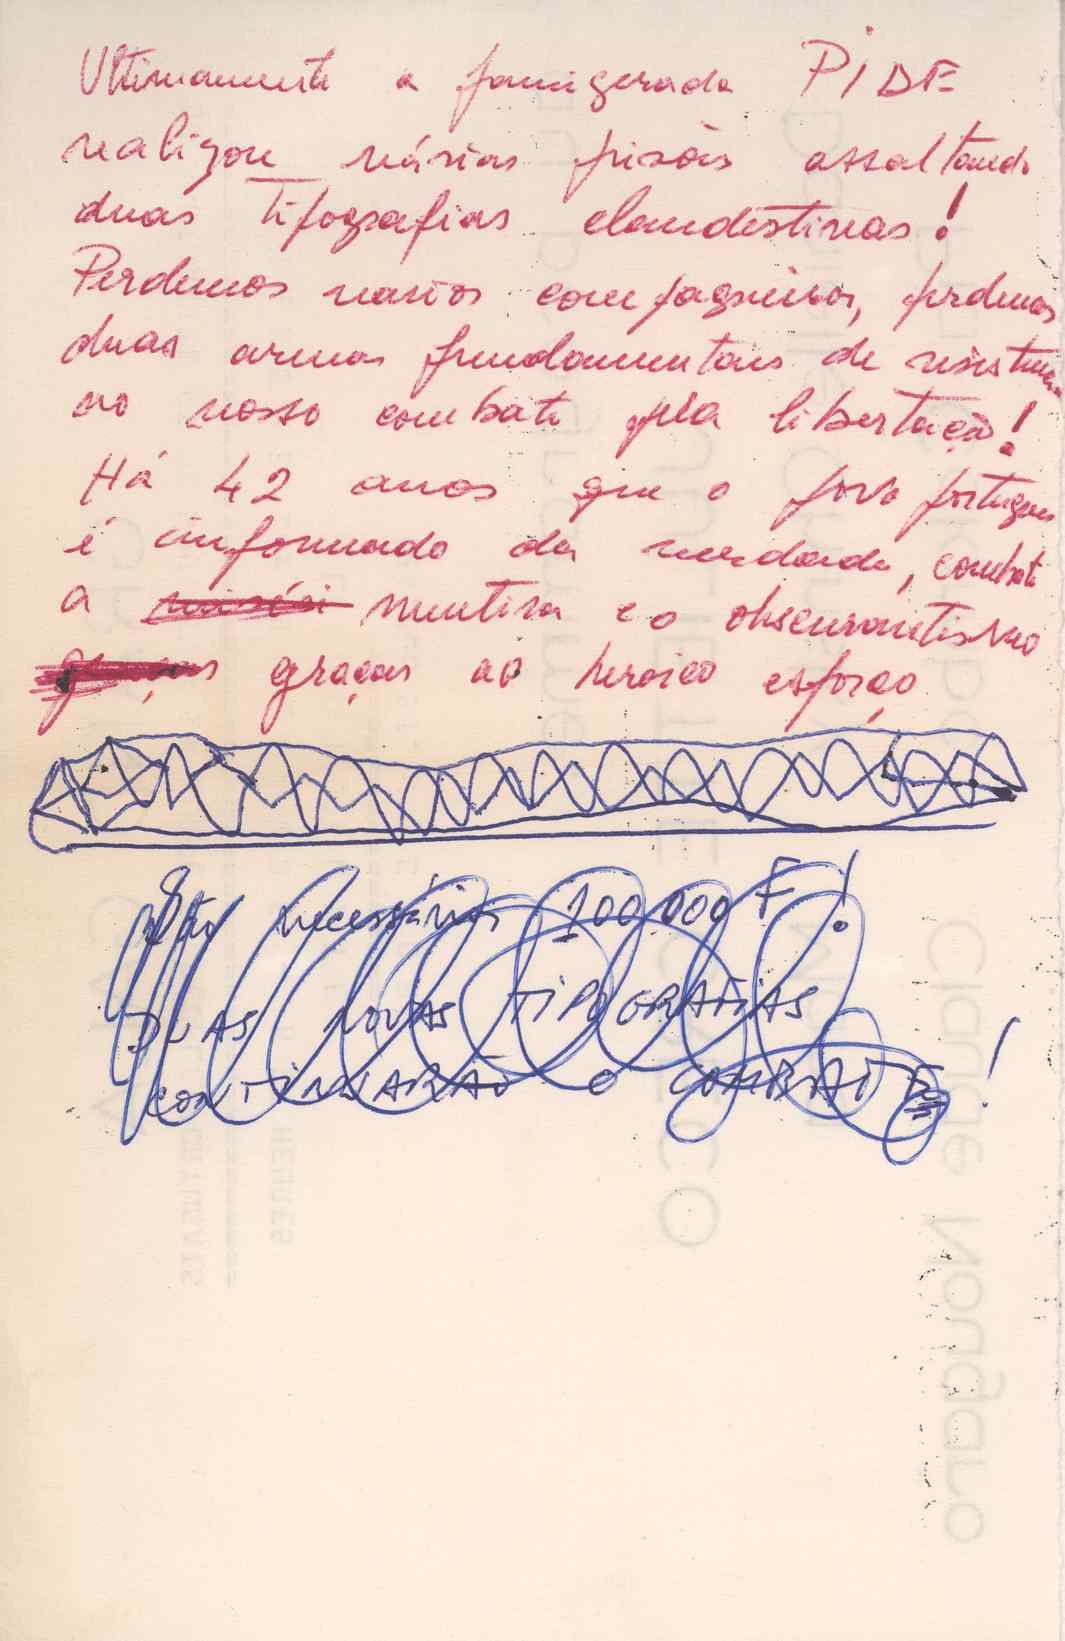 Ultimamente a famigerada PIDE
realizou várias prisões assaltando
duas Tipografias clandestinas!
Perdemos varios companheiros, perdemos
duas armas fundamentais de resistencia
no nosso combate pela libertação!
Há 42 anos que o povo portugues
é informado da verdade, combate
a miséria mentira e o obscurantismo
graças graças ao heroico esforço
São necessários 100.000 F!
DUAS NOVAS TIPOGRAFIAS
CONTINUARÃO O COMBATE!
Claude Nougaro